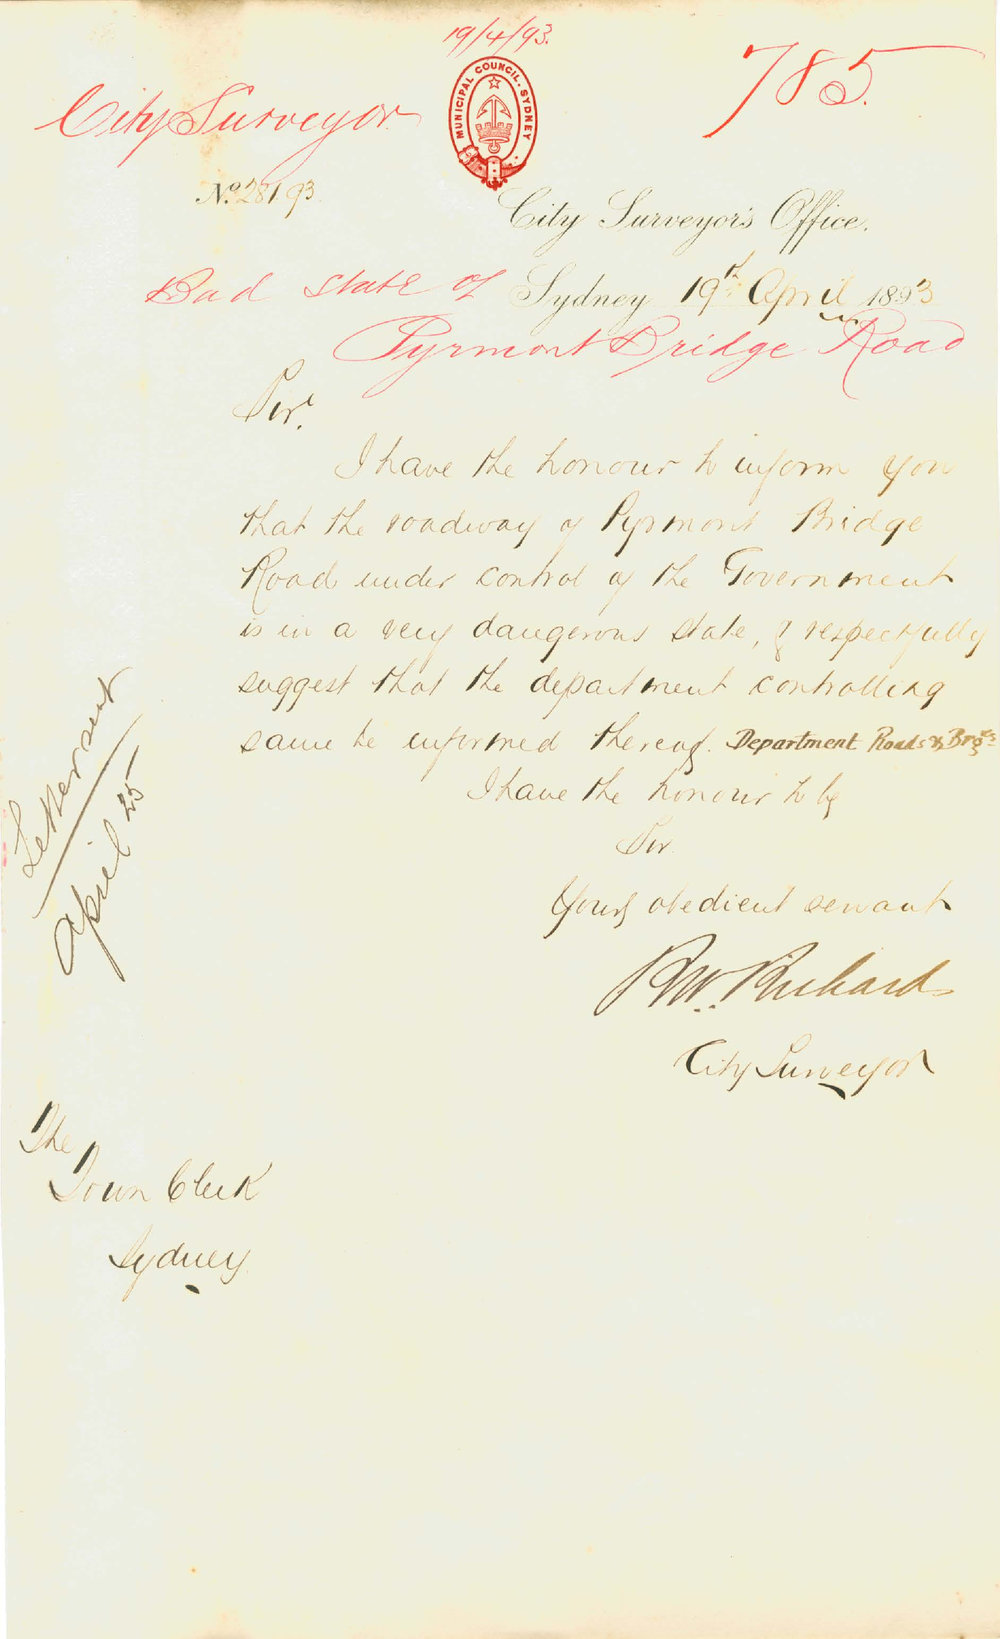 19/4/93.
785.
MUNICIPAL COUNCIL. SYDNEY
City Surveyor
No. 281 93
City Surveyor's Office.
Bad state of
Sydney 19th April 1893
Pyrmont Bridge Road
Sir,
I have the honour to inform you
that the roadway of Pyrmont Bridge
Road under control of the Government
is in a very dangerous state, & respectfully
suggest that the department controlling
same be informed thereof. Department Roads & Brgs
I have the honour to be
Sir
Your obedient servant
R W. Richards
City Surveyor
Letter sent
April 25
The
Town Clerk
Sydney